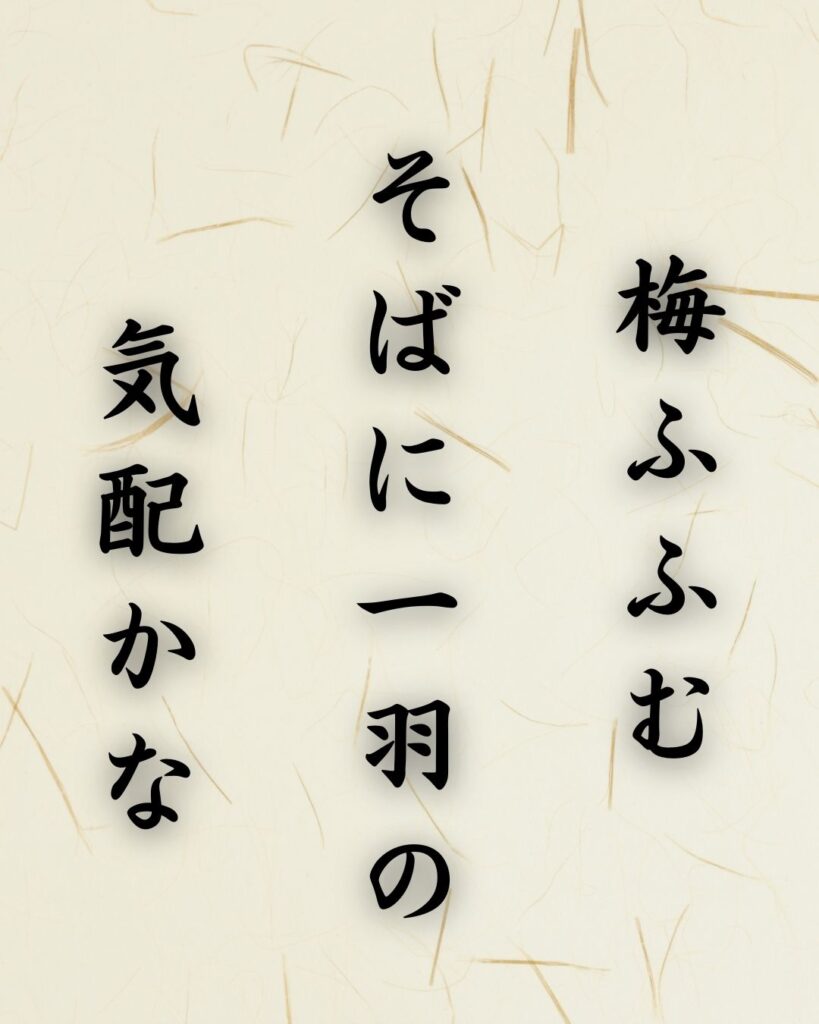 梅ふふむ
そばに一羽の
気配かな